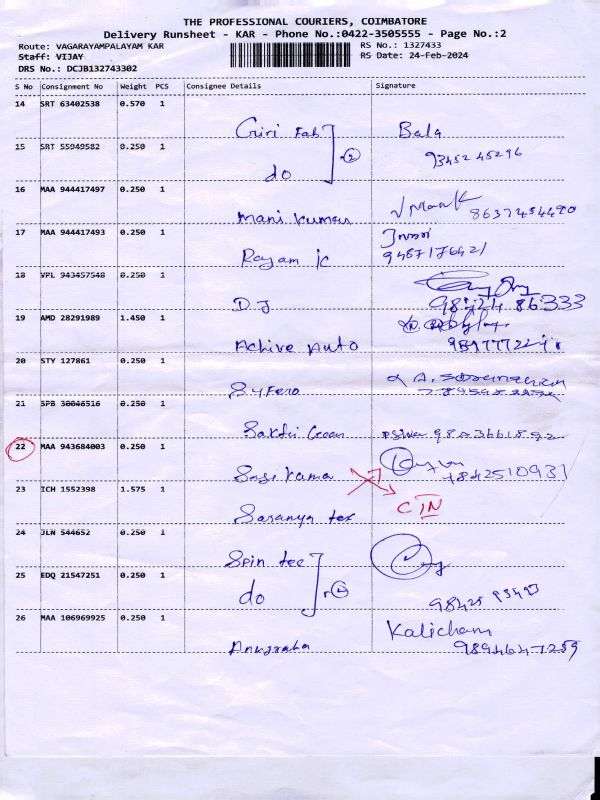 THE PROFESSIONAL COURIERS, COIMBATORE
Delivery Runsheet - KAR - Phone No.:0422-3505555 - Page No.:2
Route: VAGARAYAMPALAYAM KAR
RS No.: 1327433
Staff: VIJAY
RS Date: 24-Feb-2024
DRS No.: DCJB132743302
S No Consignment No Weight PCS Consignee Details Signature
14 SRT 63402538 0.570 1
Giri Fab Bala
15 SRT 55949582 0.250 1
2 9345245296
do
16 MAA 944417497 0.250 1
Mani Kumar 8637454490
17 MAA 944417493 0.250 1
Rayam jc 9487176421
18 VPL 943457548 0.250 1
D.J 98424 86333
19 AMD 28291989 1.450 1
Active Auto
20 STY 127861 0.250 1
21 SPB 30046516 0.250 1
Sakthi Green 9843661892
22 MAA 943684003 0.250 1
Sasi Kama 7842510931
23 ICH 1552398 1.575 1
Saranya tex CIN
24 JLN 544652 0.250 1
Spin tee
25 EDQ 21547251 0.250 1
do 2 98425 93493
26 MAA 106969925 0.250 1
Kalicham
Anugraha 9894647259